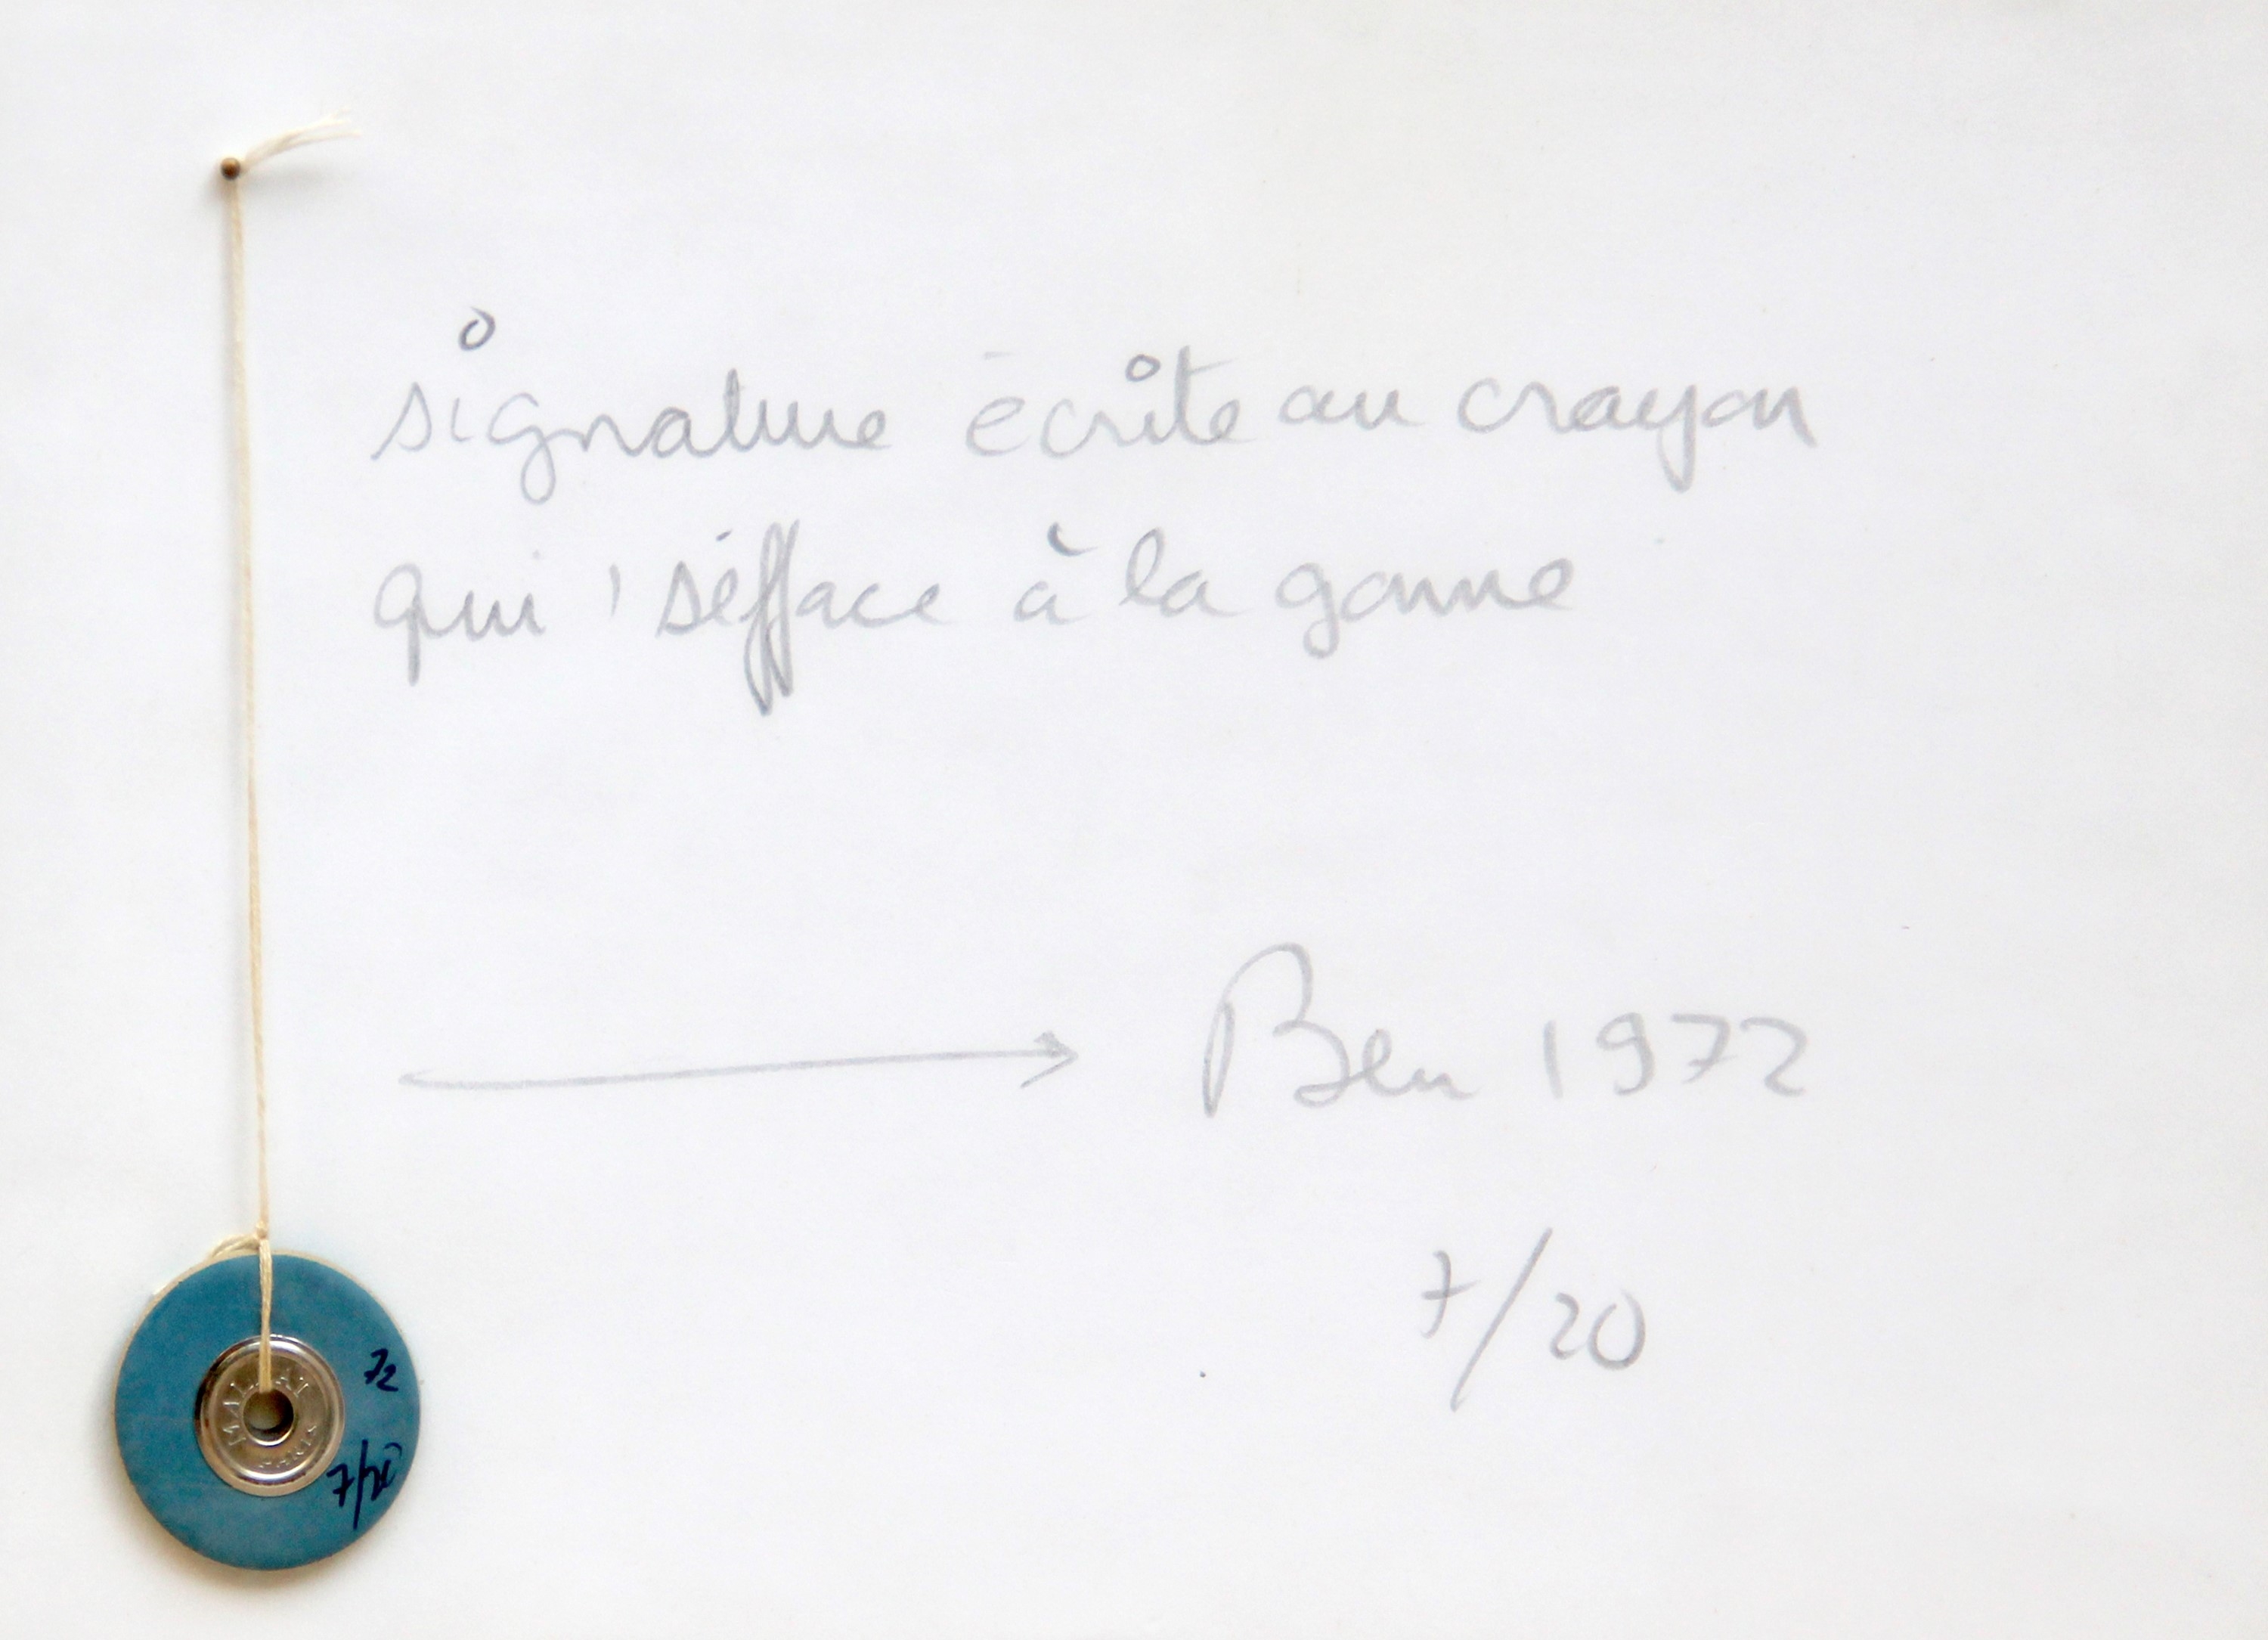 signature écrite au crayon
qui s'éfface à la gomme
Ben 1972
7/20
72
7/20
MALAT
PARIS